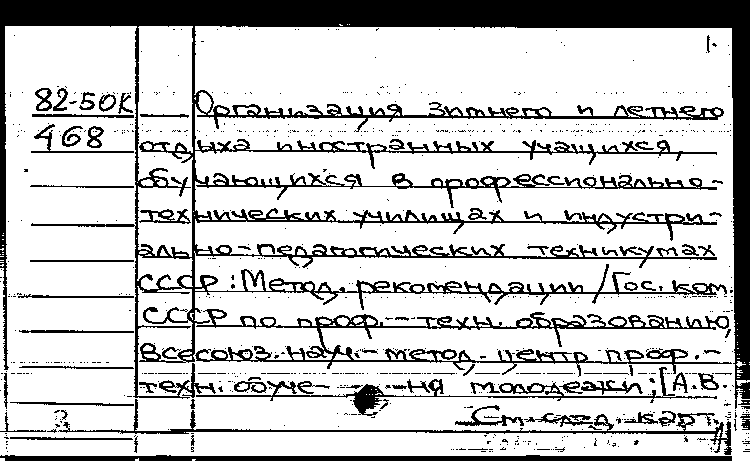 1.
82-50К
468
Организация зимнего и летнего
отдыха иностранных учащихся,
обучающихся в профессионально-
технических училищах и индустри-
ально-педагогических техникумах
СССР: Метод. рекомендации / Гос. ком.
СССР по проф.-техн. образованию,
Всесоюз. науч.-метод. центр проф.-
техн. обуче- -ния молодежи; [А.В.
См. след. карт.